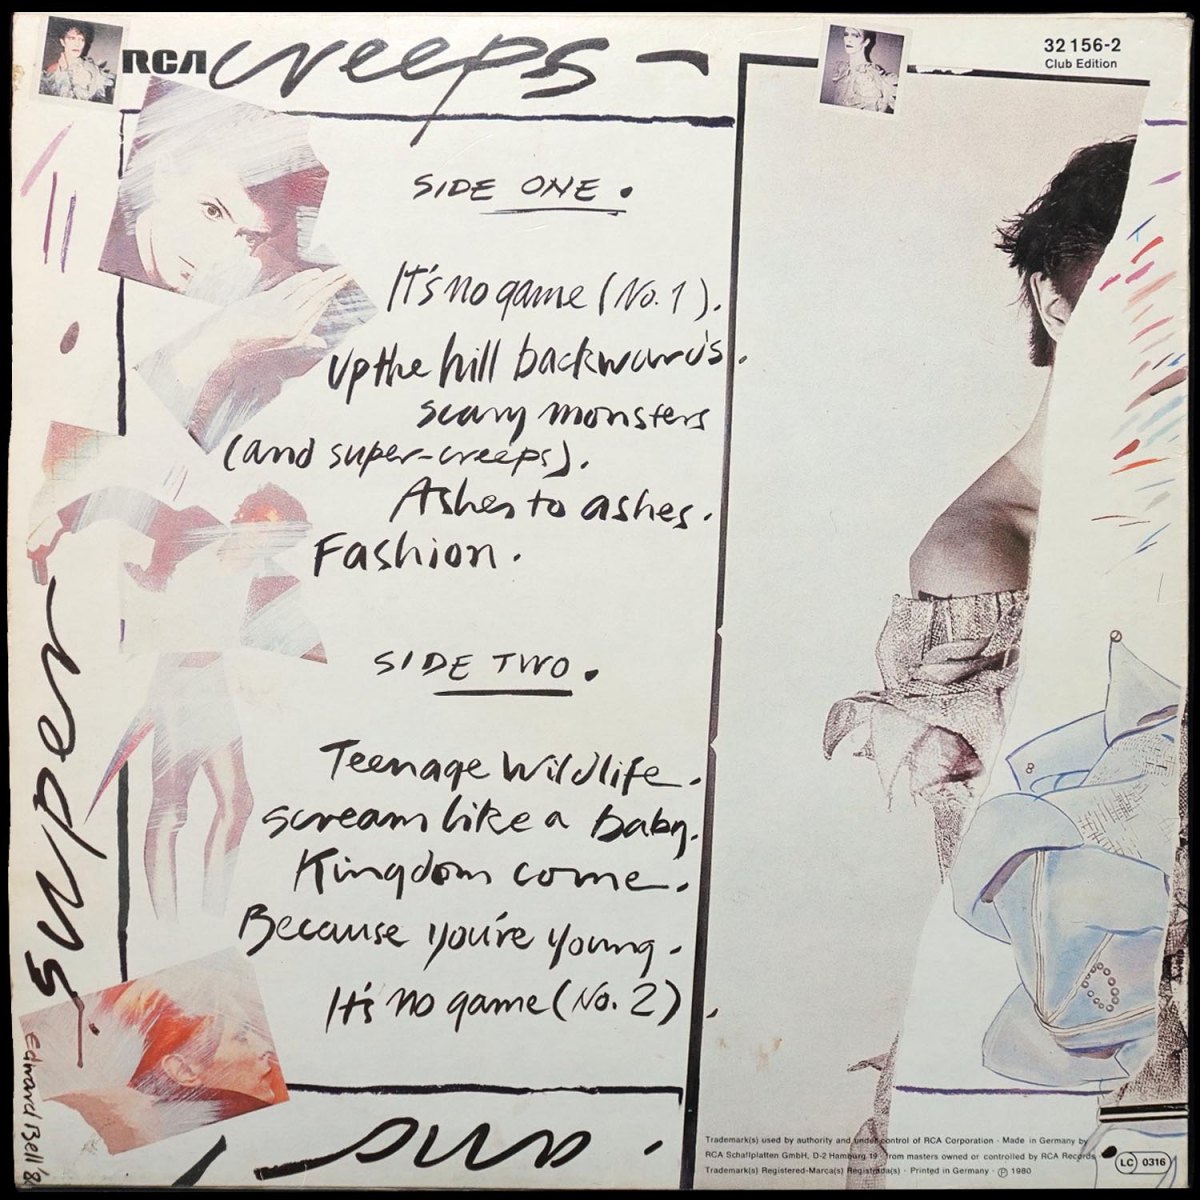 RCA creeps –
32 156-2
Club Edition
SIDE ONE.
It's no game (No. 1).
Up the hill backwards.
scary monsters
(and super-creeps).
Ashes to ashes.
Fashion.
SIDE TWO.
Teenage Wildlife.
scream like a baby.
Kingdom come.
Because you're young.
It's no game (No. 2).
super
and
Edward Bell '8
Trademark(s) used by authority and under control of RCA Corporation · Made in Germany by
RCA Schallplatten GmbH, D-2 Hamburg 19 from masters owned or controlled by RCA Records
Trademark(s) Registered-Marca(s) Registrada(s) · Printed in Germany · Ⓟ 1980
LC 0316